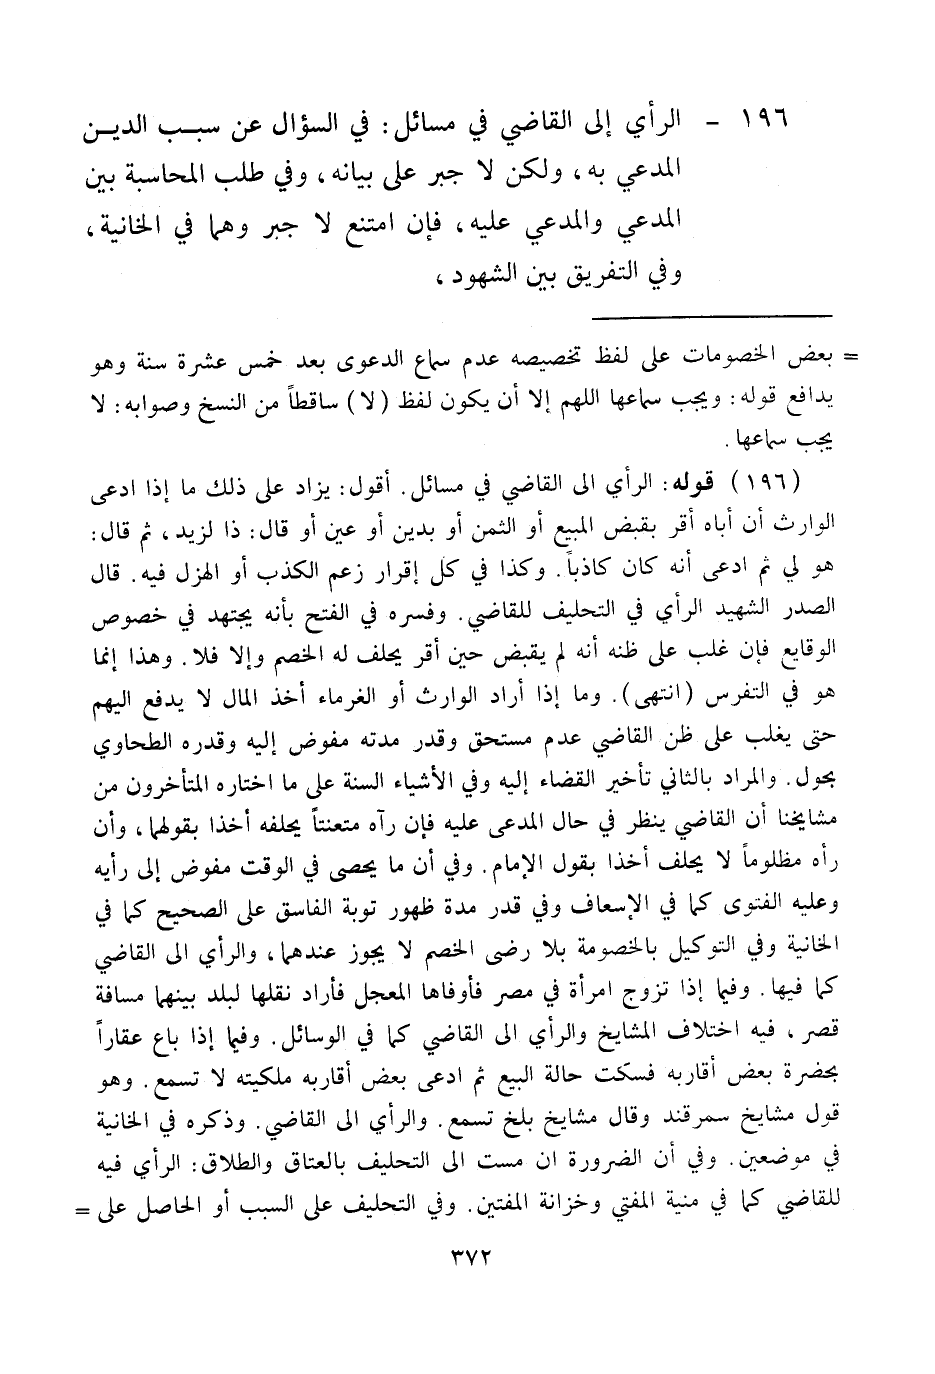 ١٩٦ - الرأي إلى القاضي في مسائل: في السؤال عن سبب الدين
المدعي به، ولكن لا جبر على بيانه، وفي طلب المحاسبة بين
المدعي والمدعي عليه، فإن امتنع لا جبر وهما في الخانية،
وفي التفريق بين الشهود،
= بعض الخصومات على لفظ تخصيصه عدم سماع الدعوى بعد خمس عشرة سنة وهو
يدافع قوله: ويجب سماعها اللهم إلا أن يكون لفظ (لا) ساقطاً من النسخ وصوابه: لا
يجب سماعها.
(١٩٦) قوله: الرأي الى القاضي في مسائل. أقول: يزاد على ذلك ما إذا ادعى
الوارث أن أباه أقر بقبض المبيع أو الثمن أو بدين أو عين أو قال: ذا لزيد، ثم قال:
هو لي ثم ادعى أنه كان كاذباً. وكذا في كل إقرار زعم الكذب أو الهزل فيه. قال
الصدر الشهيد الرأي في التحليف للقاضي. وفسره في الفتح بأنه يجتهد في خصوص
الوقايع فإن غلب على ظنه أنه لم يقبض حين أقر يحلف له الخصم وإلا فلا. وهذا إنما
هو في التفرس (انتهى). وما إذا أراد الوارث أو الغرماء أخذ المال لا يدفع اليهم
حتى يغلب على ظن القاضي عدم مستحق وقدر مدته مفوض إليه وقدره الطحاوي
بحول. والمراد بالثاني تأخير القضاء إليه وفي الأشياء الستة على ما اختاره المتأخرون من
مشايخنا أن القاضي ينظر في حال المدعى عليه فإن رآه متعنتاً يحلفه أخذا بقولهما، وأن
رأه مظلوماً لا يحلف أخذا بقول الإمام. وفي أن ما يحصى في الوقت مفوض إلى رأيه
وعليه الفتوى كما في الإسعاف وفي قدر مدة ظهور توبة الفاسق على الصحيح كما في
الخانية وفي التوكيل بالخصومة بلا رضى الخصم لا يجوز عندهما، والرأي الى القاضي
كما فيها. وفيما إذا تزوج امرأة في مصر فأوفاها المعجل فأراد نقلها لبلد بينهما مسافة
قصر، فيه اختلاف المشايخ والرأي الى القاضي كما في الوسائل. وفيما إذا باع عقاراً
بحضرة بعض أقاربه فسكت حالة البيع ثم ادعى بعض أقاربه ملكيته لا تسمع. وهو
قول مشايخ سمرقند وقال مشايخ بلخ تسمع. والرأي الى القاضي. وذكره في الخانية
في موضعين. وفي أن الضرورة ان مست الى التحليف بالعتاق والطلاق: الرأي فيه
للقاضي كما في منية المفتي وخزانة المفتين. وفي التحليف على السبب أو الحاصل على =
٣٧٢